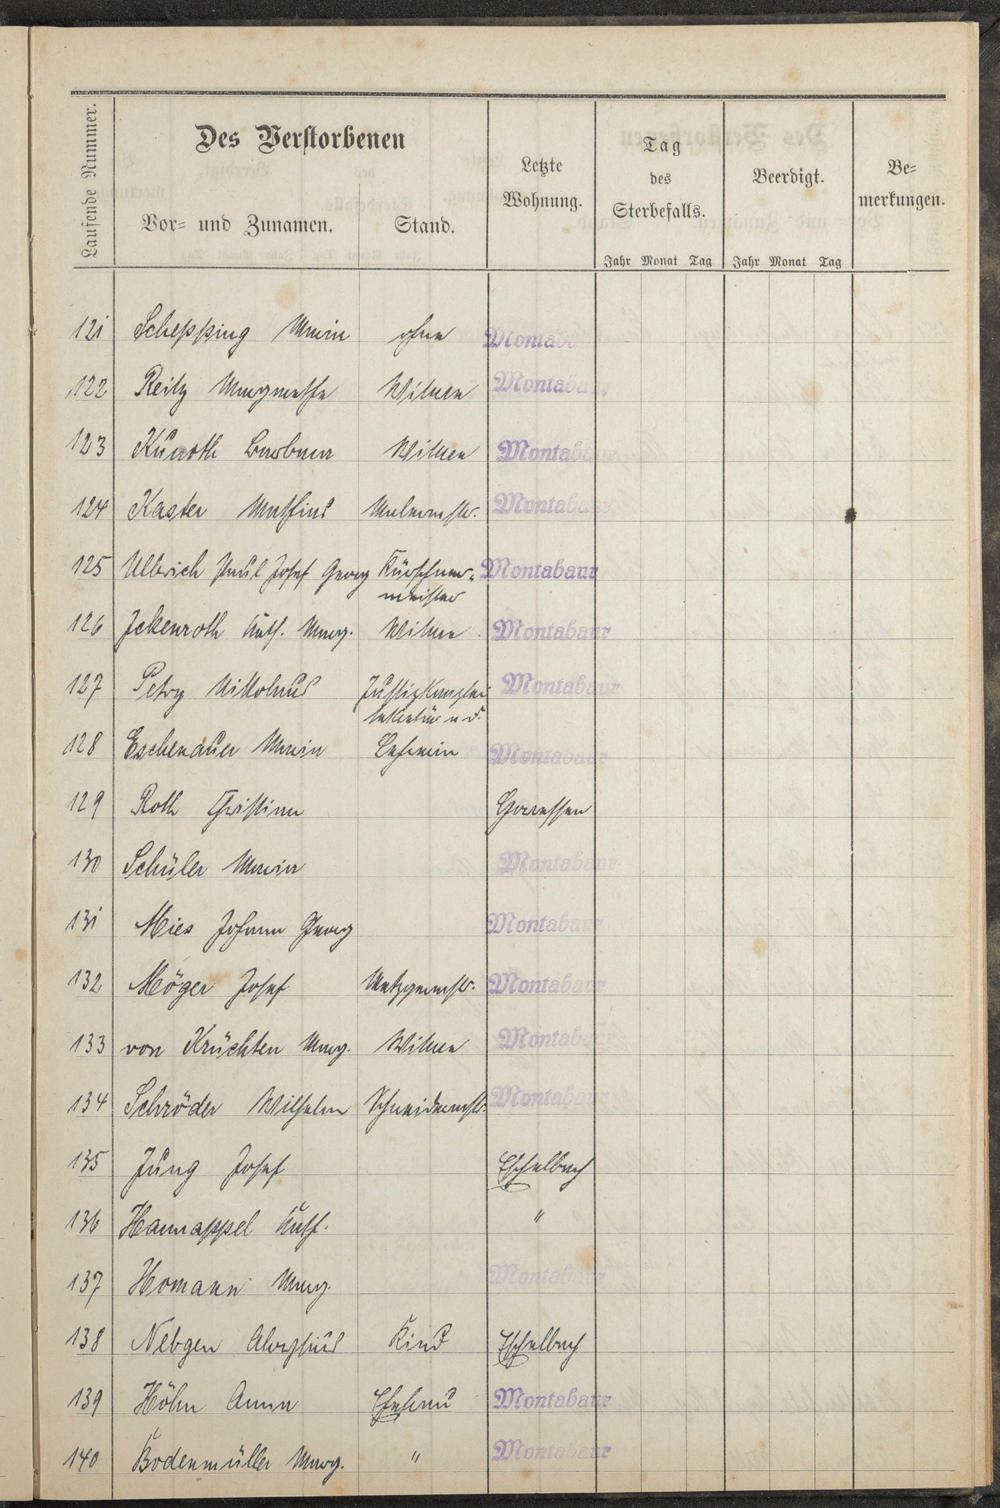 Laufende Nummer.
Des Verstorbenen
Vor= und Zunamen.
Stand.
Letzte
Wohnung.
Tag
des
Sterbefalls.
Jahr Monat Tag
Beerdigt.
Jahr Monat Tag
Be=
merkungen.
121 Schepping Maria ohne Montabaur
122 Reitz Margarethe Witwe Montabaur
123 Kunoth Barbara Witwe Montabaur
124 Kaster Mathias Malermstr. Montabaur
125 Ulbrich Paul Josef Georg Kürschner= Montabaur
meister
126 Jckenroth Kath. Marg. Witwe Montabaur
127 Petry Nikolaus Justizkanzlei Montabaur
a. D.
128 Eschenauer Maria Lehrerin Montabaur
129 Roth Christian Horressen
130 Schüler Maria Montabaur
131 Mies Johann Georg Montabaur
132 Möger Josef Metzgermstr. Montabaur
133 von Krüchten Marg. Witwe Montabaur
134 Schröder Wilhelm Schneidermstr. Montabaur
135 Jung Josef Eschelbach
136 Hannappel Kath. "
137 Homann Marg. Montabaur
138 Nebgen Aloysius Kind Eschelbach
139 Höhn Anna Ehefrau Montabaur
140 Bodenmüller Marg. " Montabaur